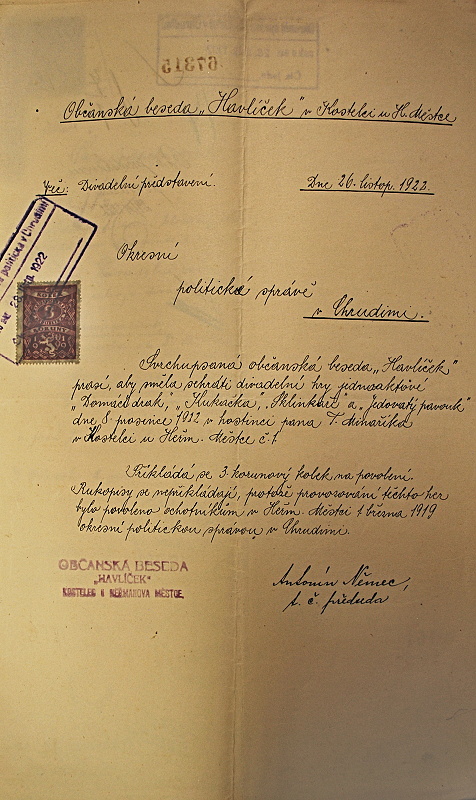 67315
Občanská beseda „Havlíček" v Kostelci u H. Městce
Věc: Divadelní představení.
Dne 26. listop. 1922.
Okresní
politické správě
v Chrudimi.
politická v Chrudimi
1922
KOLEK
3
KORUNY
Svrchupsaná občanská beseda „Havlíček"
prosí, aby směla sehráti divadelní hry jednoaktové
„Domácí drak", „Kukačka", „Sklinkář" a „Jedovatý pavouk"
dne 8. prosince 1922 v hostinci pana T. Minaříka
v Kostelci u Heřm. Městce č. 1
Přikládá se 3 korunový kolek na povolení.
Rukopisy se nepřikládají, protože provozování těchto her
bylo povoleno ochotníkům v Heřm. Městci 1. března 1919
okresní politickou správou v Chrudimi.
OBČANSKÁ BESEDA
„HAVLÍČEK"
KOSTELEC U HEŘMANOVA MĚSTCE,
Antonín Němec,
t. č. předseda